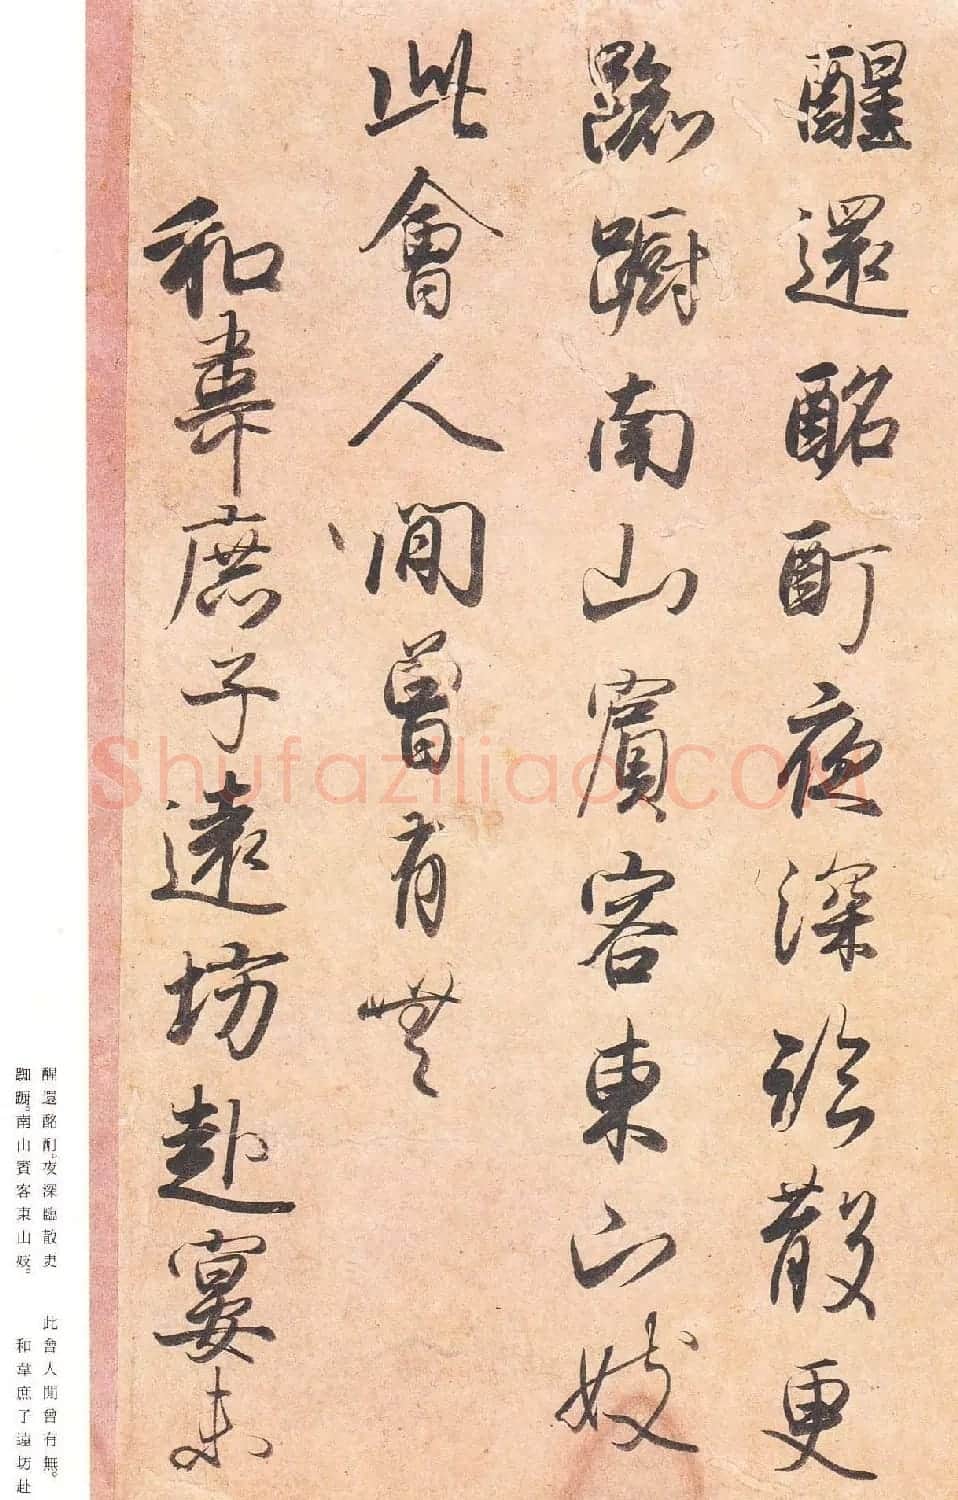 醒還酩酊夜深臨散更
踟躕南山賓客東山妓
此會人間曾有無
和韋庶子遠坊赴宴未
醒還酩酊。夜深臨散更
踟躕。南山賓客東山妓。
此會人間曾有無。
和韋庶子遠坊赴
Shufaziliao.COM